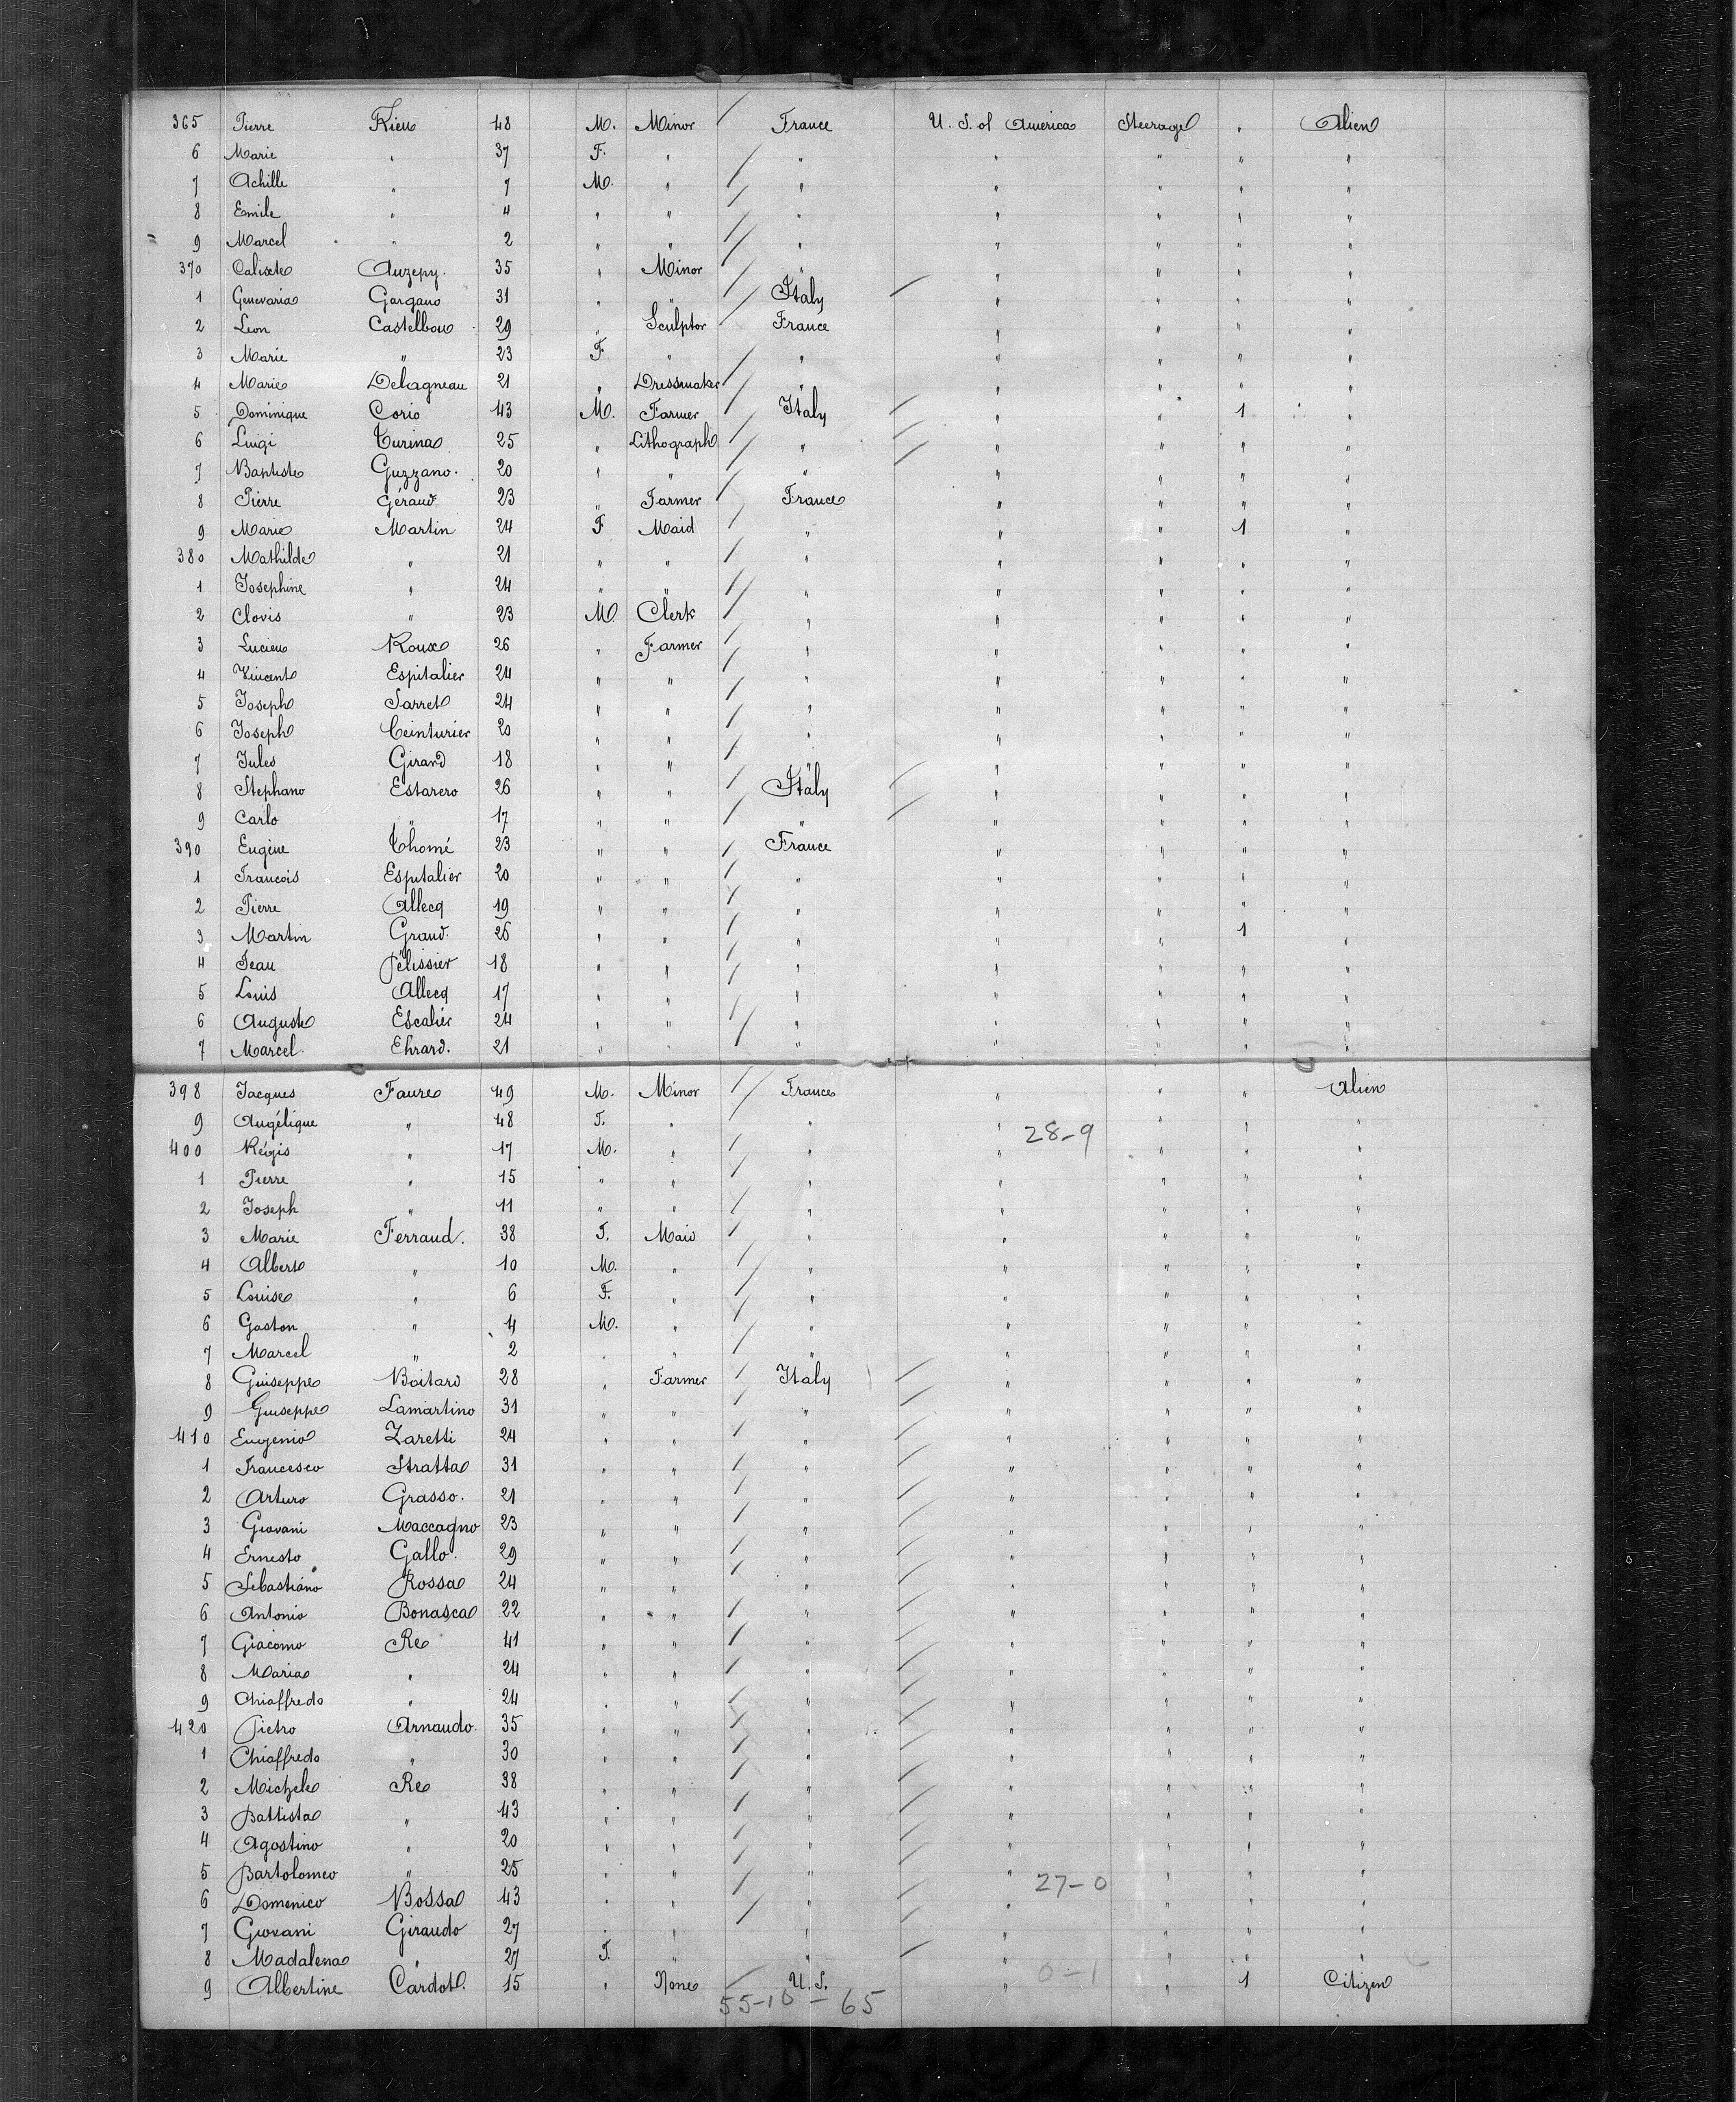 365 Pierre Rieu 48 M. Minor France U. S. of America Steerage " Alien
6 Marie " 37 F. " " " " " "
7 Achille " 7 M. " " " " " "
8 Emile " 4 " " " " " " "
9 Marcel " 2 " " " " " " "
370 Calixte Auzepy. 35 " Minor " " " " "
1 Genevaria Gargano 31 " " Italy " " " "
2 Leon Castelbou 29 " Sculptor France " " " "
3 Marie " 23 F " " " " " "
4 Marie Delagneau 21 " Dressmaker " " " " "
5 Dominique Corio 43 M. Farmer Italy " " 1 "
6 Luigi Turina 25 " Lithograph " " " " "
7 Baptiste Guzzano. 20 " " " " " " "
8 Pierre Géraud 23 " Farmer France " " " "
9 Marie Martin 24 F Maid " " " 1 "
380 Mathilde " 21 " " " " " " "
1 Josephine " 24 " " " " " " "
2 Clovis " 23 M Clerk " " " " "
3 Lucien Roux 26 " Farmer " " " " "
4 Vincent Espitalier 24 " " " " " " "
5 Joseph Sarret 24 " " " " " " "
6 Joseph Ceinturier 20 " " " " " " "
7 Jules Girard 18 " " " " " " "
8 Stephano Estarero 26 " " Italy " " " "
9 Carlo " 17 " " " " " " "
390 Eugène Thomé 23 " " France " " " "
1 Francois Espitalier 20 " " " " " " "
2 Pierre Allecq 19 " " " " " " "
3 Martin Graud. 26 " " " " " 1 "
4 Jean Pélissier 18 " " " " " " "
5 Louis Allecq 17 " " " " " " "
6 Auguste Escalier 24 " " " " " " "
7 Marcel Ehrard. 21 " " " " " " "
398 Jacques Faure 49 M. Minor France " " " Alien
9 Angélique " 48 F. " " " " " "
28-9
400 Régis " 17 M. " " " " " "
1 Pierre " 15 " " " " " " "
2 Joseph " 11 " " " " " " "
3 Marie Ferraud. 38 F. Maid " " " " "
4 Albert " 10 M. " " " " " "
5 Louise " 6 F. " " " " " "
6 Gaston " 4 M. " " " " " "
7 Marcel " 2 " " " " " " "
8 Guiseppe Boitard 28 " Farmer Italy " " " "
9 Guiseppe Lamartino 31 " " " " " " "
410 Eugenio Zaretti 24 " " " " " " "
1 Francesco Stratta 31 " " " " " " "
2 Arturo Grasso. 21 " " " " " " "
3 Giovani Maccagno 23 " " " " " " "
4 Ernesto Gallo. 29 " " " " " " "
5 Sebastiano Rossa 24 " " " " " " "
6 Antonio Bonasca 22 " " " " " " "
7 Giacomo Re 41 " " " " " " "
8 Maria " 24 " " " " " " "
9 Chiaffredo " 24 " " " " " " "
420 Pietro Arnaudo. 35 " " " " " " "
1 Chiaffredo " 30 " " " " " " "
2 Michele Re 38 " " " " " " "
3 Battista " 43 " " " " " " "
4 Agostino " 20 " " " " " " "
5 Bartolomeo " 25 " " " " " " "
27-0
6 Domenico Bossa 43 " " " " " " "
7 Giovani Giraudo 27 " " " " " " "
8 Madalena " 27 F. " " " " " "
0-1
9 Albertine Cardot. 15 " None U. S. " " 1 Citizen
55-10-65